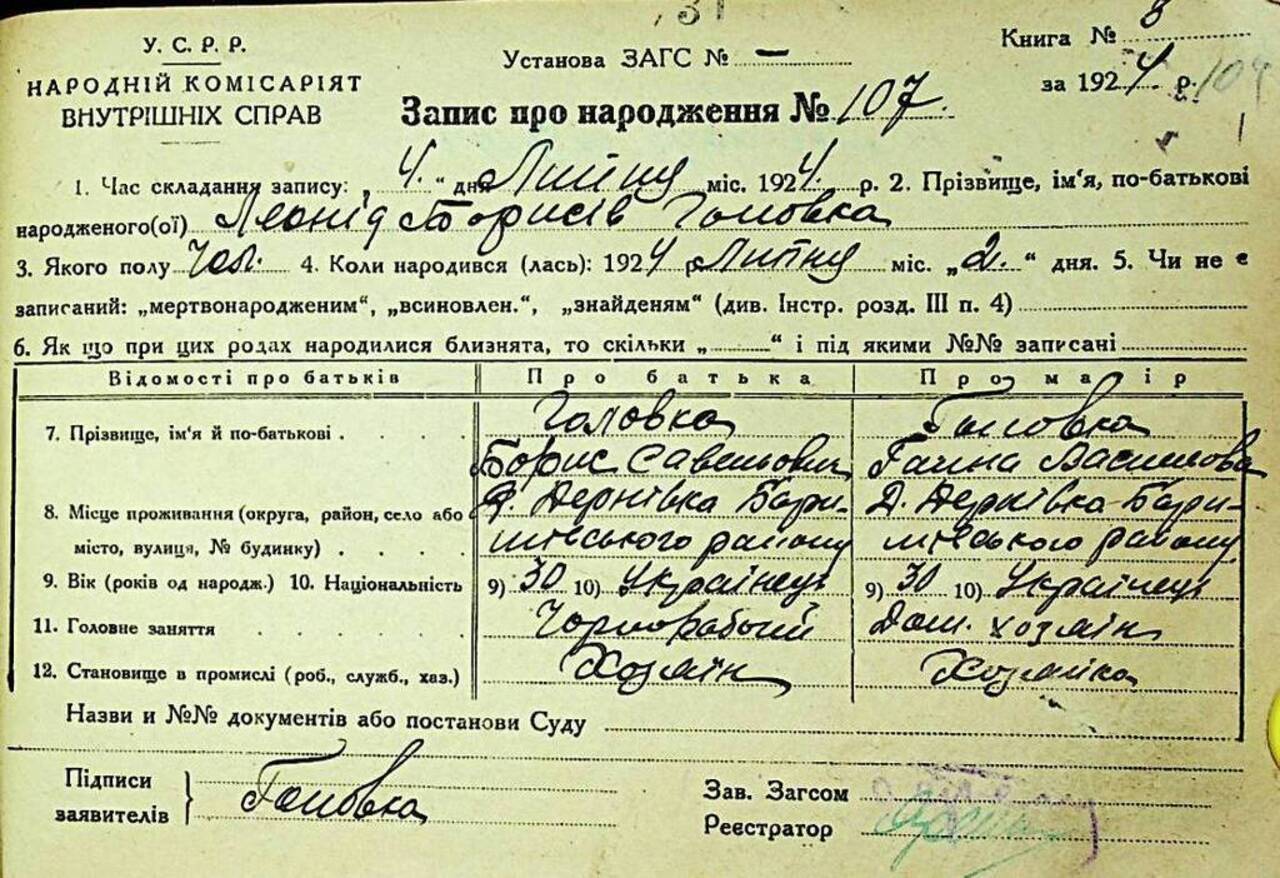 31
У. С. Р. Р.
НАРОДНІЙ КОМІСАРІЯТ
ВНУТРІШНІХ СПРАВ
Установа ЗАГС № —
Книга № 8
за 1924 р. 104
Запис про народження № 107.
1. Час складання запису: „ 4. “ дня Липня міс. 1924. р. 2. Прізвище, ім'я, по-батькові
народженого(ої) Леонід Борисів Головка
3. Якого полу Чол. 4. Коли народився (лась): 1924 р. Липня міс. „ 2. “ дня. 5. Чи не є
записаний: „мертвонародженим“, „всиновлен.“, „знайденям“ (див. Інстр. розд. III п. 4)
6. Як що при цих родах народилися близнята, то скільки „ “ і під якими №№ записані
Відомості про батьків Про батька Про матір
7. Прізвище, ім'я й по-батькові . . . . Головка Головка
Борис Савельович Ганна Василова
8. Місце проживання (округа, район, село або Д. Дернівка Бари- Д. Дернівка Бари-
місто, вулиця, № будинку) . . . . шівського району шівського району
9. Вік (років од народж.) 10. Національність 9) 30 10) Українець 9) 30 10) Українець
11. Головне заняття . . . . . . Чорноробочий Дом. хозяін
12. Становище в промислі (роб., служб., хаз.) Хозяїн Хозяйка
Назви и №№ документів або постанови Суду
Підписи
заявителів } Головка
Зав. Загсом
Реєстратор